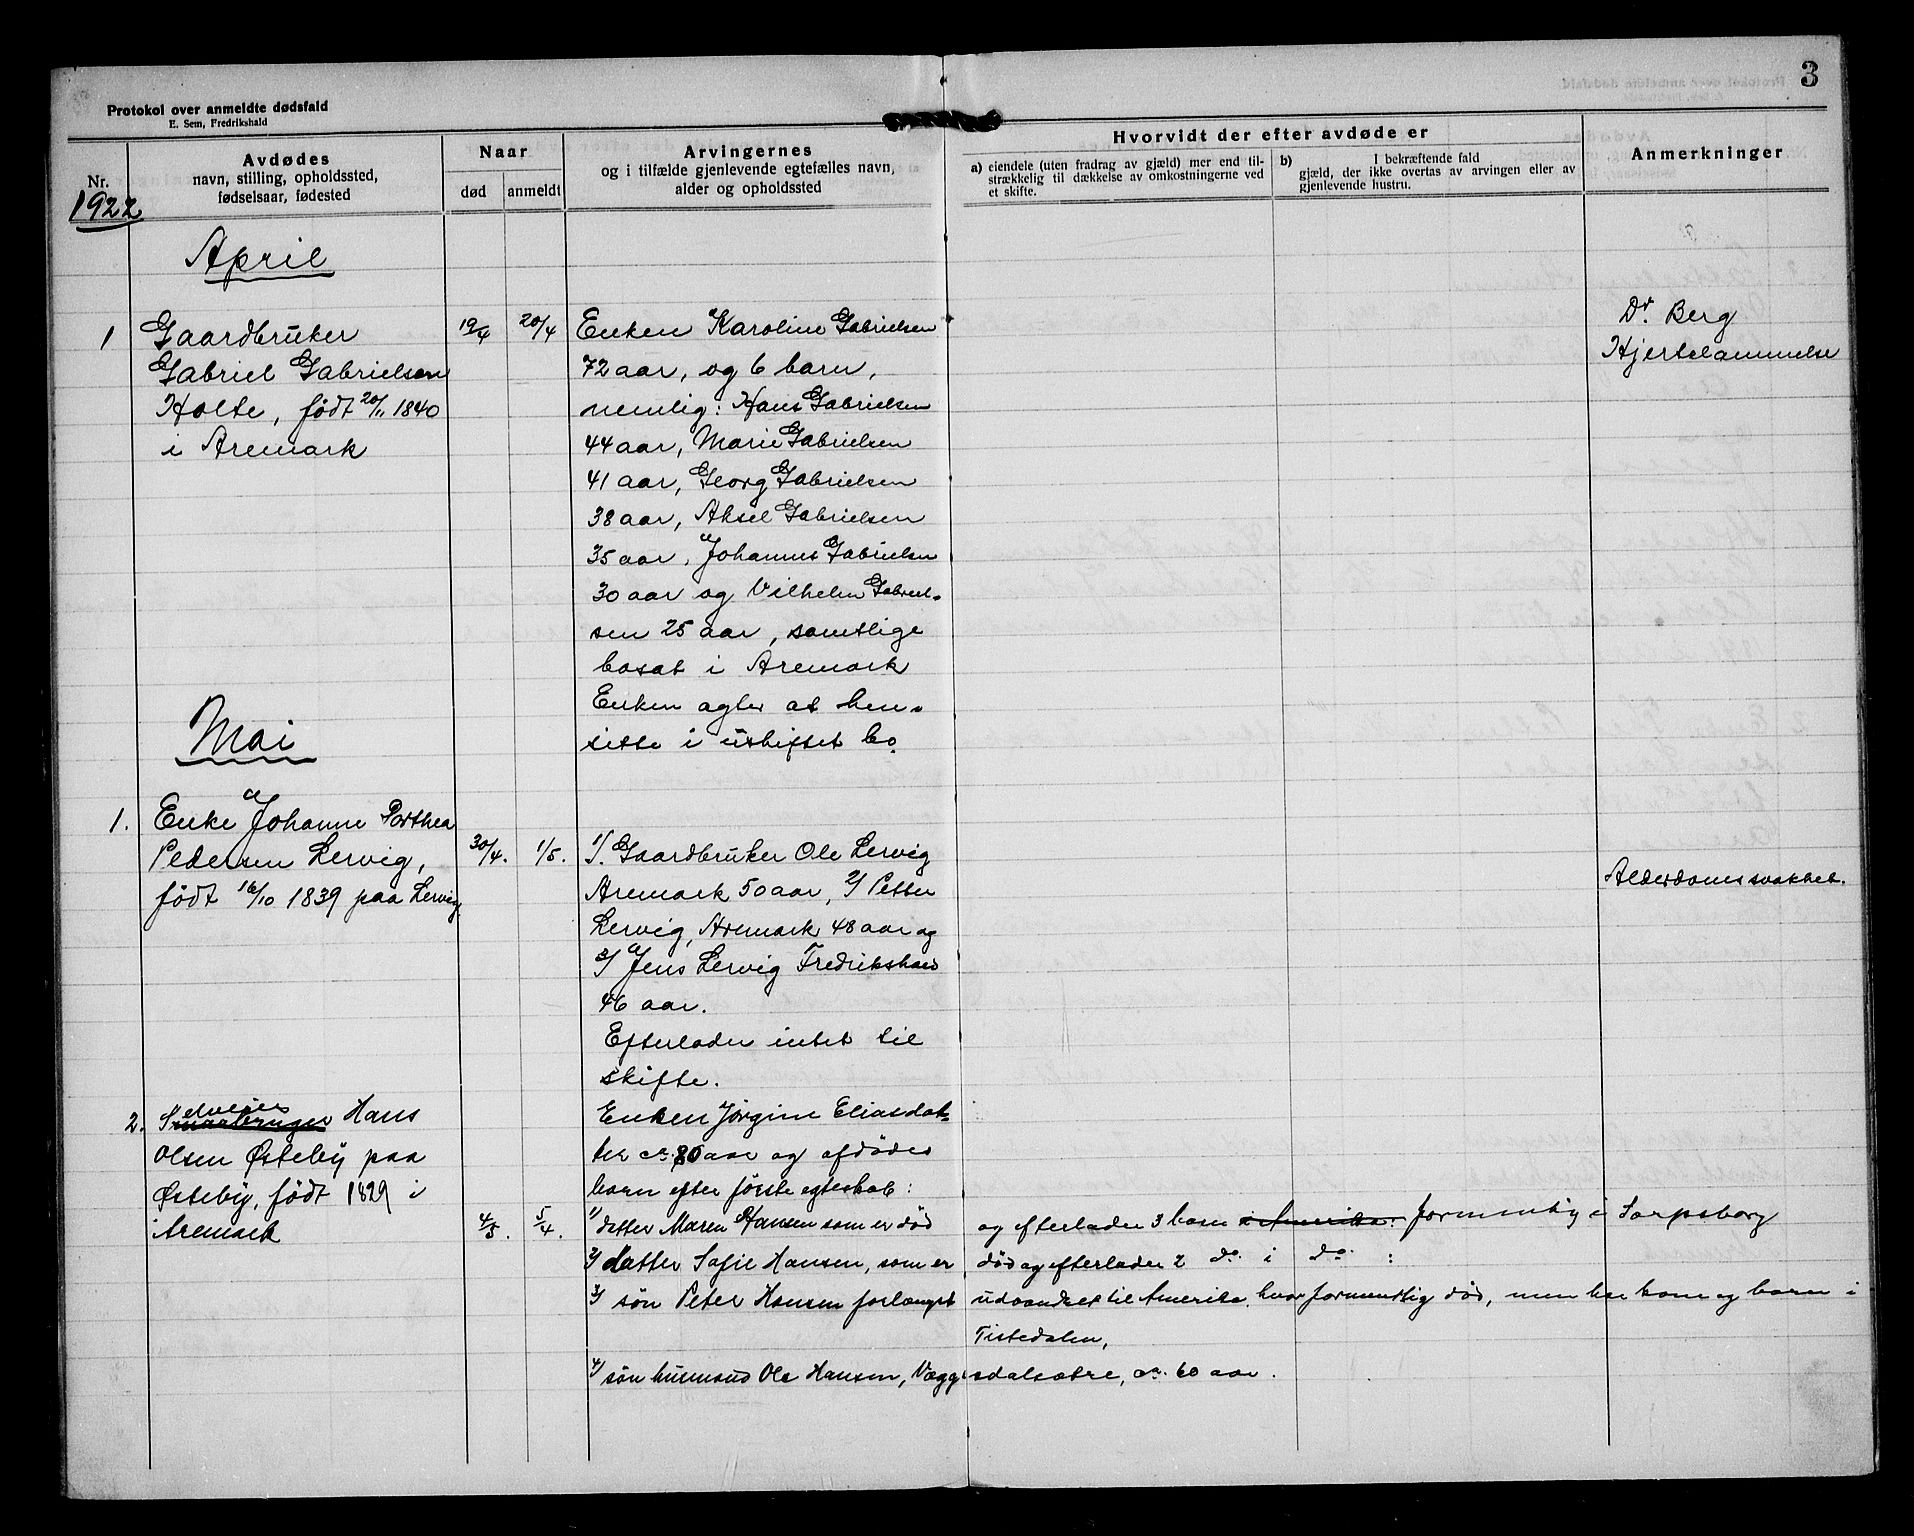 3
Protokol over anmeldte dødsfald
E. Sem, Fredrikshald
Nr.
Avdødes
navn, stilling, opholdssted,
fødselsaar, fødested
Naar
død
anmeldt
Arvingernes
og i tilfælde gjenlevende egtefælles navn,
alder og opholdssted
Hvorvidt der efter avdøde er
a) eiendele (uten fradrag av gjæld) mer end til-
strækkelig til dækkelse av omkostningerne ved
et skifte.
b) I bekræftende fald
gjæld, der ikke overtas av arvingen eller av
gjenlevende hustru.
Anmerkninger
1922
April
1
Gaardbruker
Gabriel Gabrielsen
Holte, født 20/11 1840
i Aremark
19/4
20/4
Enken Karoline Gabrielsen
72 aar, og 6 barn,
nemlig: Hans Gabrielsen
44 aar, Marie Gabrielsen
41 aar, Georg Gabrielsen
38 aar, Aksel Gabrielsen
35 aar, Johannes Gabrielsen
30 aar og Vilhelm Gabriel-
sen 25 aar, samtlige
bosat i Aremark
Enken agter at hen-
sitte i uskiftet bo.
Dr. Berg
Hjertelammelse
Mai
1.
Enke Johanne Dorthea
Pedersen Lervig,
født 16/10 1839 paa Lervig
30/4.
1/5.
1/. Gaardbruker Ole Lervig
Aremark 50 aar, 2/ Petter
Lervig, Aremark 48 aar og
3/ Jens Lervig Fredrikshald
46 aar.
Efterlader intet til
skifte.
Alderdomssvakhet.
2.
Selveier Hans
Olsen Østeby paa
Østeby, født 1829 i
Aremark
4/5.
5/4.
Enken Jørgine Eliasdat-
ter ca. 80 aar og afdødes
barn efter første egteskab:
1/ datter Maren Hansen som er død og efterlader 3 barn i Amerika. formentlig i Sarpsborg
2/ datter Sofie Hansen, som er død og efterlader 2 do. i do. :
3/ søn Peter Hansen forlængst udvandret til Amerika, hvor formentlig død, men har kone og barn i
Tistedalen,
4/ søn husmand Ole Hansen, , ca. 60 aar.